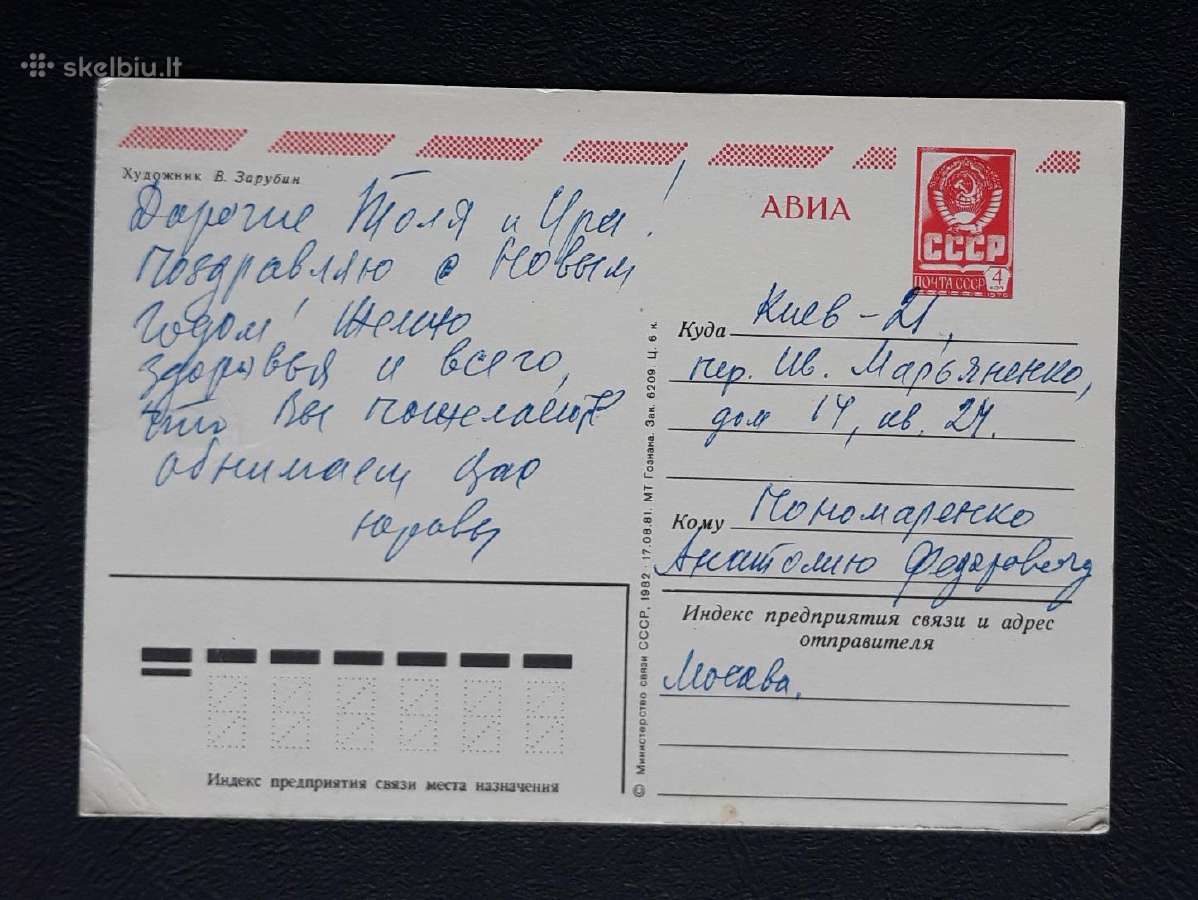 skelbiu.lt
Художник В. Зарубин
Дорогие Толя и Ира!
Поздравляю с Новым
годом! Желаю
здоровья и всего,
что Вы пожелаете
обнимаем Вас
АВИА
СССР
ПОЧТА СССР
4
КОП
1976
Куда Киев-21,
пер. Ив. Марьяненко,
дом 14, кв. 27.
Кому Пономаренко
Анатолию Федоровичу
Индекс предприятия связи и адрес
отправителя
Москва,
Индекс предприятия связи места назначения
© Министерство связи СССР, 1982 · 17.08.81. МТ Гознака. Зак. 6209. Ц. 6 к.